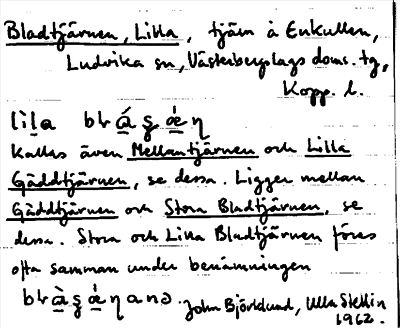 Bladtjärnen, Lilla, tjärn å Enkullen,
Ludvika sn, Västerbergslags doms. tg,
Kopp. l.
lila
Kallas även Mellantjärnen och Lilla
Gäddtjärnen, se dessa. Ligger mellan
Gäddtjärnen och Stora Bladtjärnen, se
dessa. Stora och Lilla Bladtjärnen föres
ofta samman under benämningen
John Björklund, Ulla Stellin
1962.